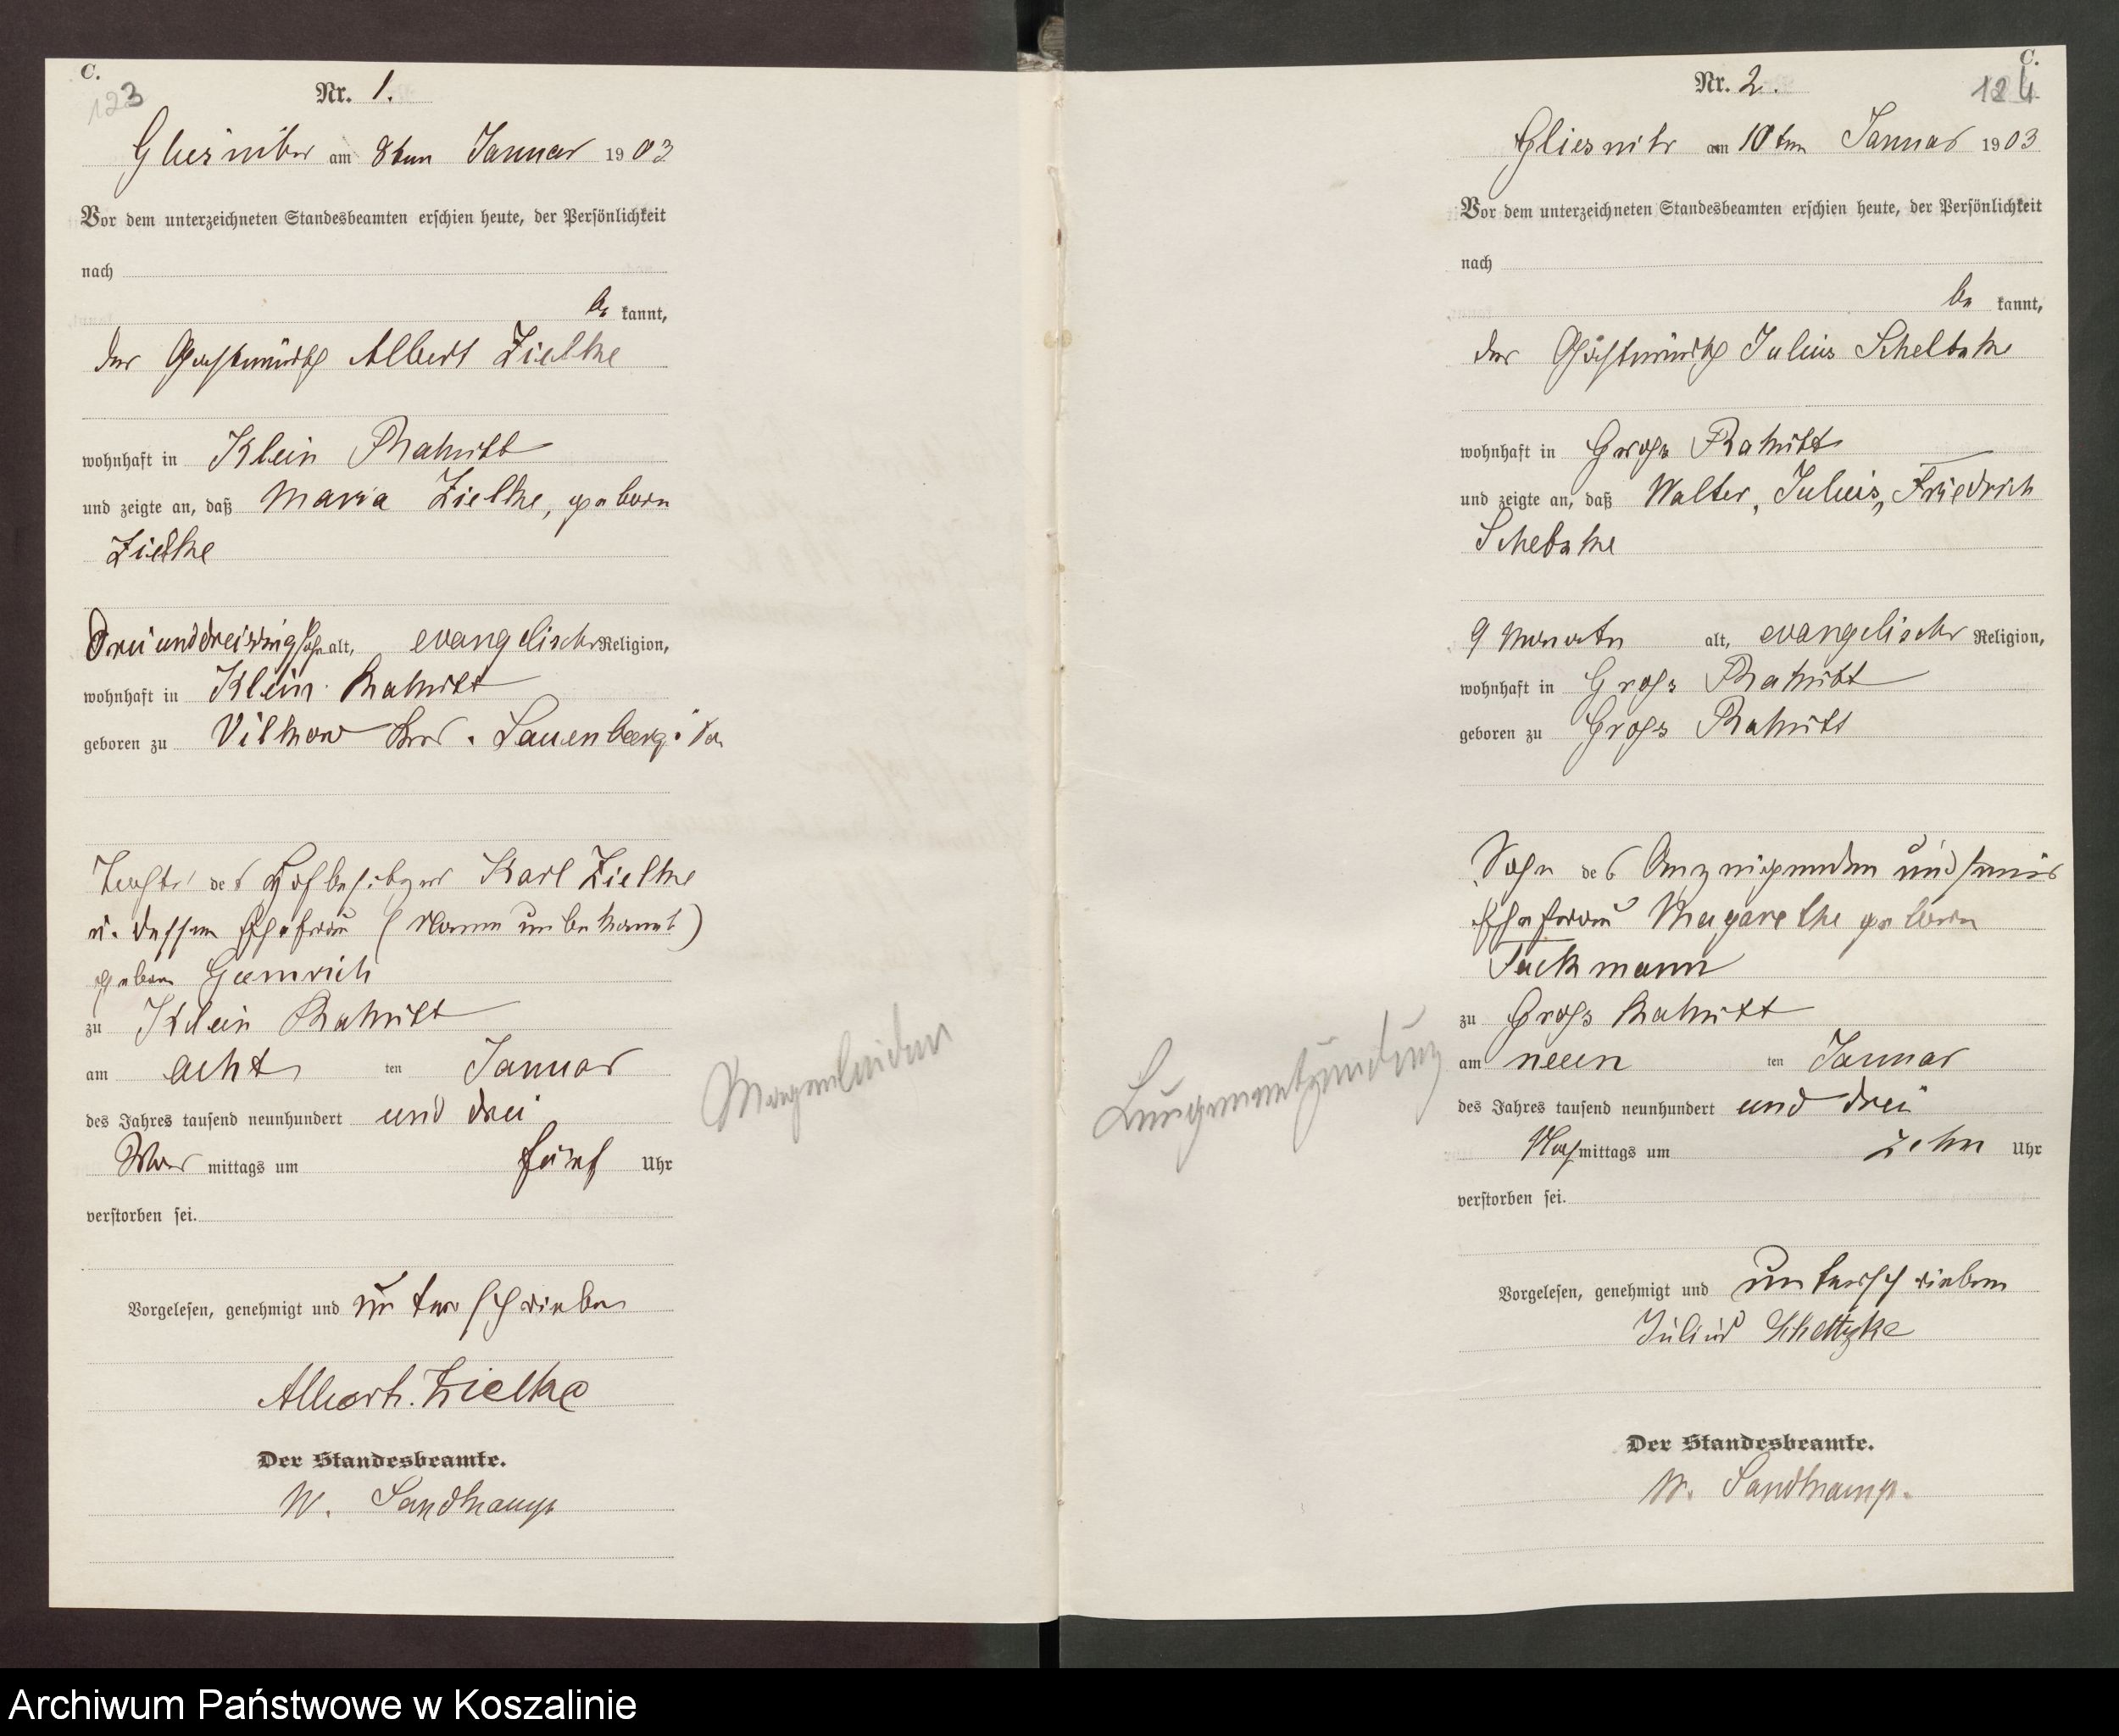 C.
123
Nr. 1.
am 8ten Januar 1903
Vor dem unterzeichneten Standesbeamten erschien heute, der Persönlichkeit
nach
be kannt,
der Gastwirth Albert Zielke
wohnhaft in Klein Rakitt
und zeigte an, daß Maria Zielke, geborn
Zielke
Dreiunddreissig Jahr alt, evangelischer Religion,
wohnhaft in Klein Rakitt
geboren zu Vilkow Lauenberg
Tochter des Hofbesitzers Karl Zielke
u. dessen Ehefrau (Name unbekannt)
geboren
zu Klein Rakitt
am acht ten Januar
des Jahres tausend neunhundert und drei
Vor mittags um fünf Uhr
verstorben sei.
Vorgelesen, genehmigt und unterschrieben
Albert. Zielke
Der Standesbeamte.
W. Sandkamp
Magenleiden
C.
124
Nr. 2.
Gliesnitz am 10ten Januar 1903
Vor dem unterzeichneten Standesbeamten erschien heute, der Persönlichkeit
nach
be kannt,
der Gastwirth Julius
wohnhaft in Gross Rakitt
und zeigte an, daß Walter, Julius, Friedrich
9 Monate alt, evangelischer Religion,
wohnhaft in Gross Rakitt
geboren zu Gross Rakitt
Sohn des Anzeigenden und seiner
Ehefrau Magarethe geboren
Tackmann
zu Gross Rakitt
am neun ten Januar
des Jahres tausend neunhundert und drei
Nachmittags um zehn Uhr
verstorben sei.
Vorgelesen, genehmigt und unterschrieben
Julius
Der Standesbeamte.
W. Sandkamp.
Lungenentzündung
Archiwum Państwowe w Koszalinie